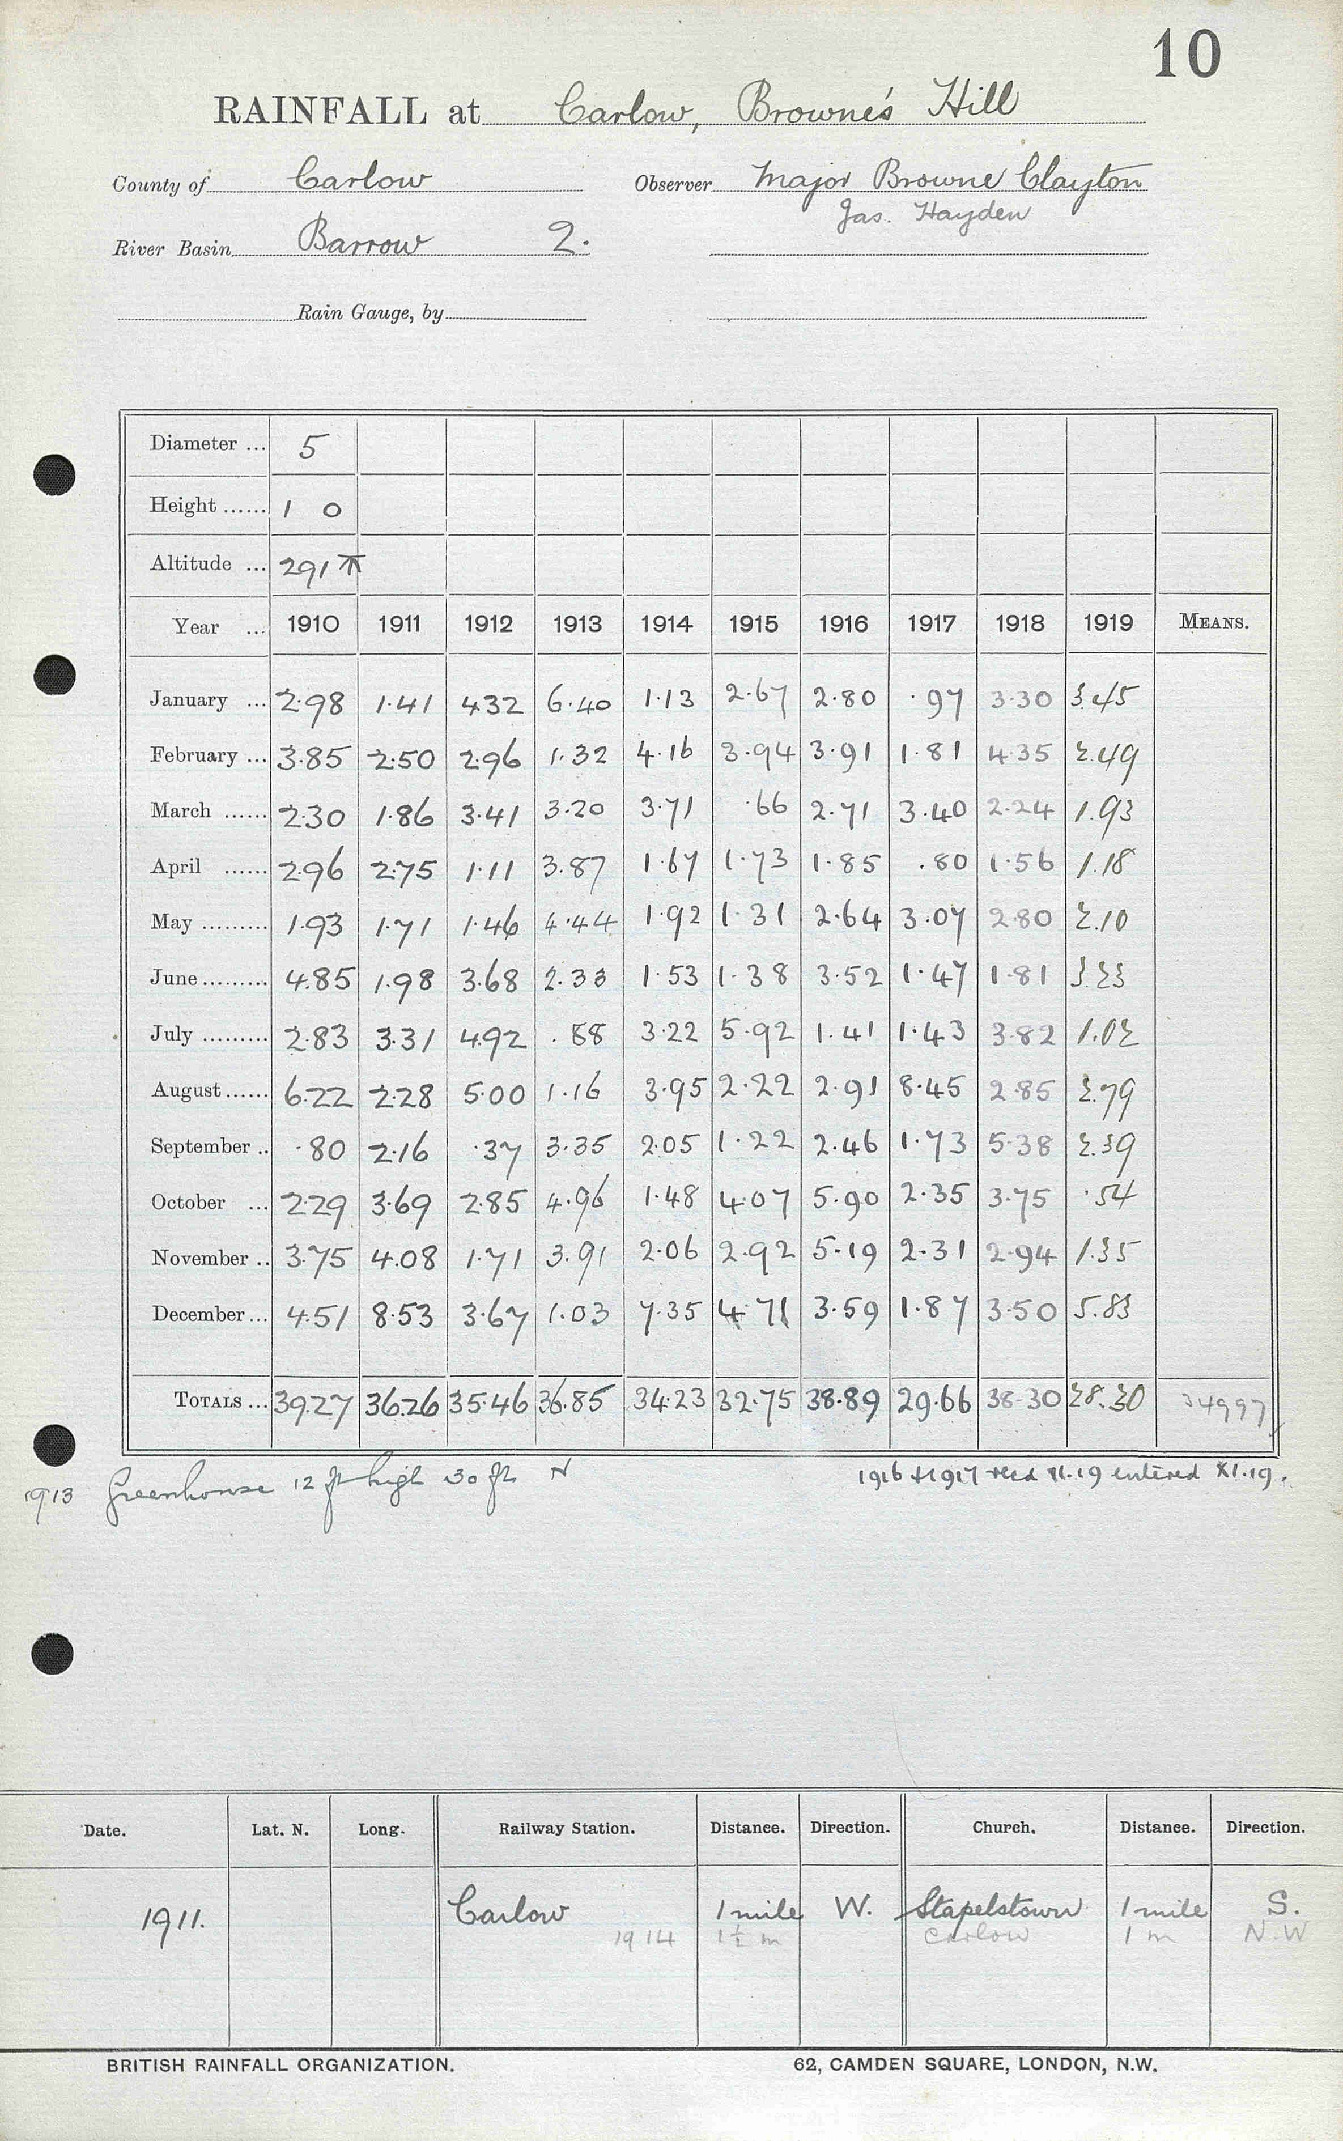 10
RAINFALL at Carlow, Browne's Hill
County of Carlow Observer Major Browne Clayton
Jas. Hayden
River Basin Barrow 2.
Rain Gauge, by
Diameter ... 5
Height ...... 1 0
Altitude ... 291
Year ... 1910 1911 1912 1913 1914 1915 1916 1917 1918 1919 MEANS.
January ... 2.98 1.41 4.32 6.40 1.13 2.67 2.80 .97 3.30 3.45
February ... 3.85 2.50 2.96 1.32 4.16 3.94 3.91 1.81 4.35 2.49
March ...... 2.30 1.86 3.41 3.20 3.71 .66 2.71 3.40 2.24 1.93
April ...... 2.96 2.75 1.11 3.87 1.67 1.73 1.85 .80 1.56 1.18
May ......... 1.93 1.71 1.46 4.44 1.92 1.31 2.64 3.07 2.80 2.10
June ......... 4.85 1.98 3.68 2.33 1.53 1.38 3.52 1.47 1.81 3.23
July ......... 2.83 3.31 4.92 .88 3.22 5.92 1.41 1.43 3.82 1.02
August ...... 6.22 2.28 5.00 1.16 3.95 2.22 2.91 8.45 2.85 2.79
September .. .80 2.16 .37 3.35 2.05 1.22 2.46 1.73 5.38 2.39
October ... 2.29 3.69 2.85 4.96 1.48 4.07 5.90 2.35 3.75 .54
November .. 3.75 4.08 1.71 3.91 2.06 2.92 5.19 2.31 2.94 1.35
December ... 4.51 8.53 3.67 1.03 7.35 4.71 3.59 1.87 3.50 5.83
TOTALS ... 39.27 36.26 35.46 36.85 34.23 32.75 38.89 29.66 38.30 28.30 34997
1913 Greenhouse 12 ft high 30 ft N
1916 + 1917 recd XI.19 entered XI.19.
Date. Lat. N. Long. Railway Station. Distance. Direction. Church. Distance. Direction.
1911. Carlow 1 mile W. Stapelstown 1 mile S.
1914 1½ m Carlow 1 m N.W
BRITISH RAINFALL ORGANIZATION. 62, CAMDEN SQUARE, LONDON, N.W.